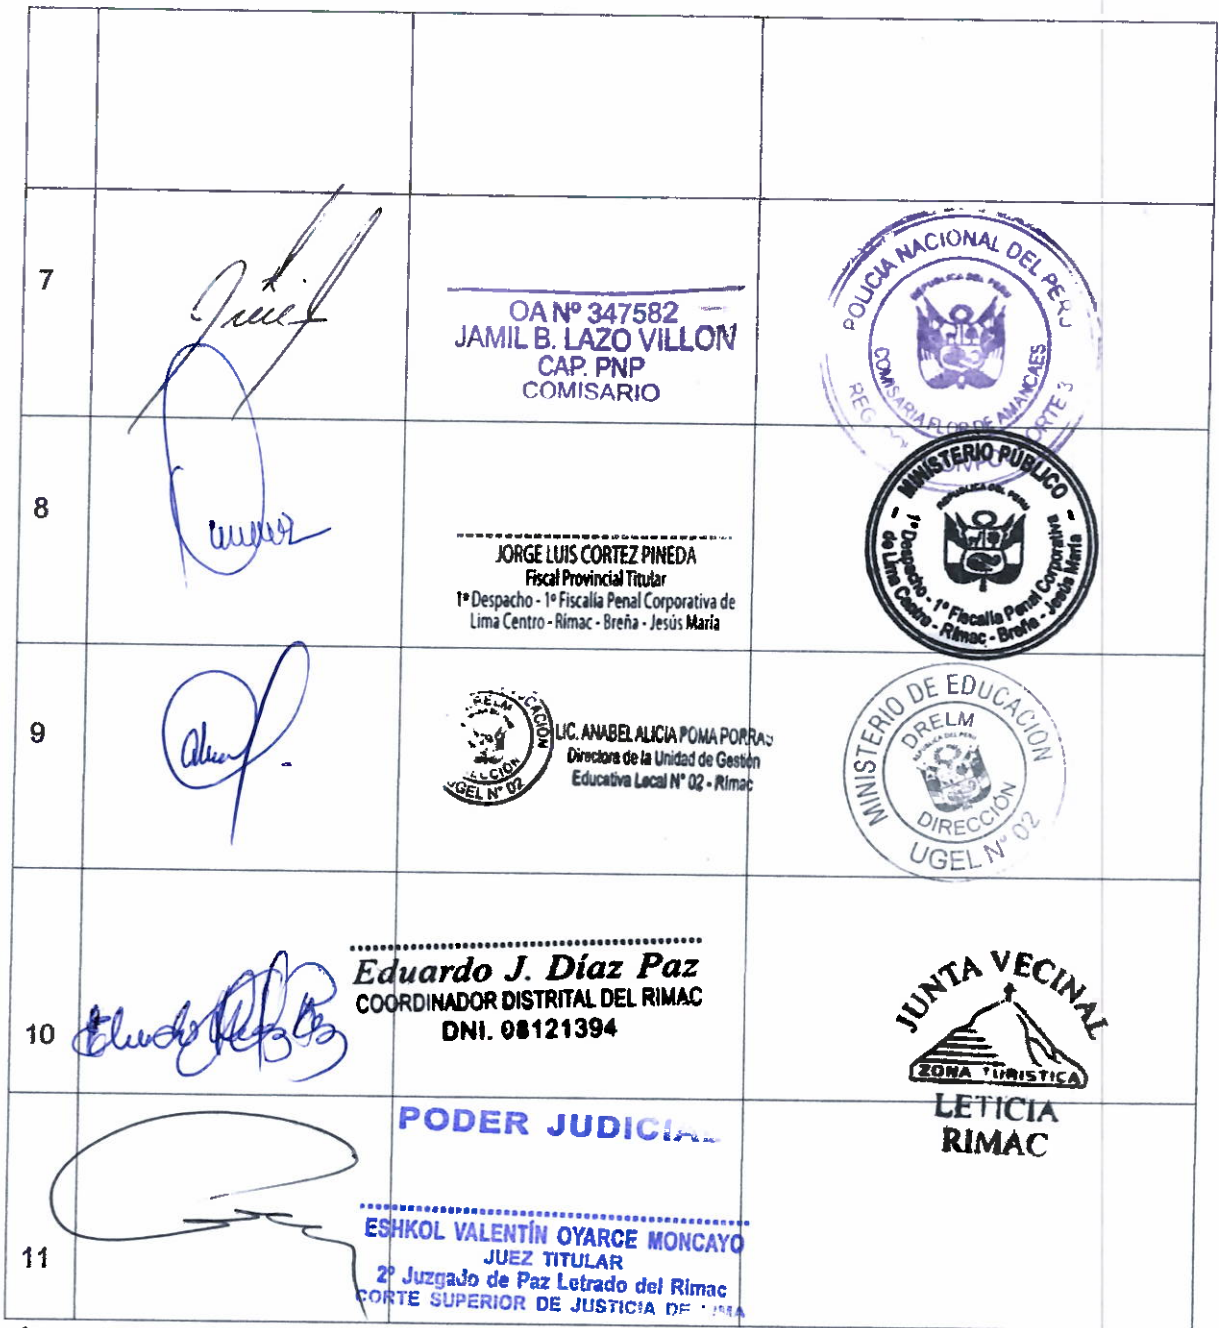 7
OA Nº 347582
JAMIL B. LAZO VILLON
CAP. PNP
COMISARIO
POLICIA NACIONAL DEL PERU
REPUBLICA DEL PERU
COMISARIA FLOR DE AMANCAES
8
JORGE LUIS CORTEZ PINEDA
Fiscal Provincial Titular
1º Despacho - 1º Fiscalía Penal Corporativa de
Lima Centro - Rímac - Breña - Jesús María
MINISTERIO PÚBLICO
REPUBLICA DEL PERU
1º Despacho - 1º Fiscalía Penal Corporativa
de Lima Centro - Rímac - Breña - Jesús María
9
DRELM
UGEL N° 02
LIC. ANABEL ALICIA POMA PORRAS
Directora de la Unidad de Gestión
Educativa Local N° 02 - Rímac
MINISTERIO DE EDUCACIÓN
DRELM
REPUBLICA DEL PERU
DIRECCIÓN
UGEL N° 02
10
Eduardo J. Díaz Paz
COORDINADOR DISTRITAL DEL RIMAC
DNI. 08121394
JUNTA VECINAL
ZONA TURISTICA
LETICIA
RIMAC
11
PODER JUDICIAL
ESHKOL VALENTÍN OYARCE MONCAYO
JUEZ TITULAR
2º Juzgado de Paz Letrado del Rimac
CORTE SUPERIOR DE JUSTICIA DE LIMA